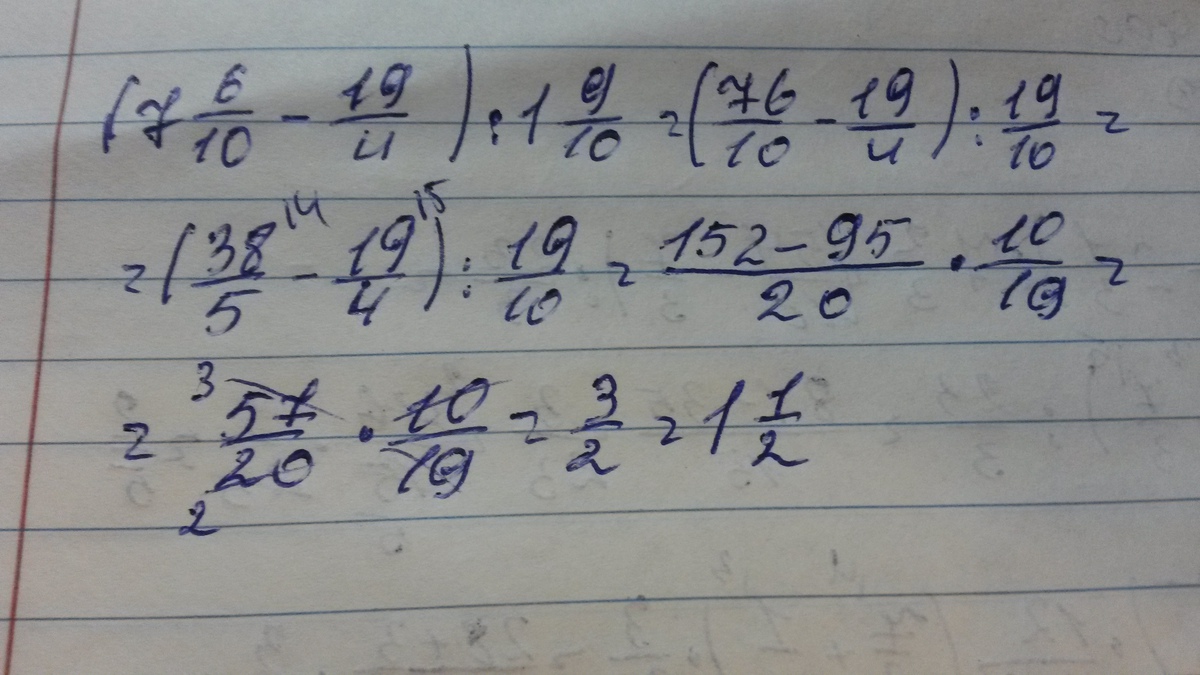 (7 6/10 - 19/4) : 1 9/10 = (76/10 - 19/4) : 19/10 =
= (38/5 \4 - 19/4 \5) : 19/10 = (152 - 95)/20 · 10/19 =
= 3 57/20 2 · 10/19 = 3/2 = 1 1/2